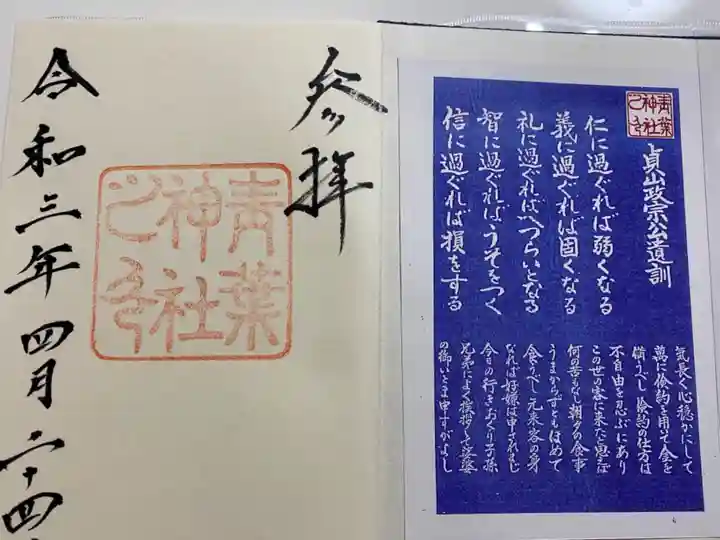 参拝
青葉
神社
之印
令和三年四月二十四
青葉
神社
之印
貞山政宗公遺訓
仁に過ぐれば弱くなる
義に過ぐれば固くなる
礼に過ぐればへつらいとなる
智に過ぐればうそをつく
信に過ぐれば損をする
気長く心穏かにして
萬に倹約を用いて金を
備うべし倹約の仕方は
不自由を忍ぶにあり
この世の客に来たと思えば
何の苦もなし朝夕の食事
うまからずともほめて
食うべし元来客の身
なれば好嫌は申されまじ
今日の行きおくり子孫
兄弟によく挨拶して娑婆
の御いとま申すがよし